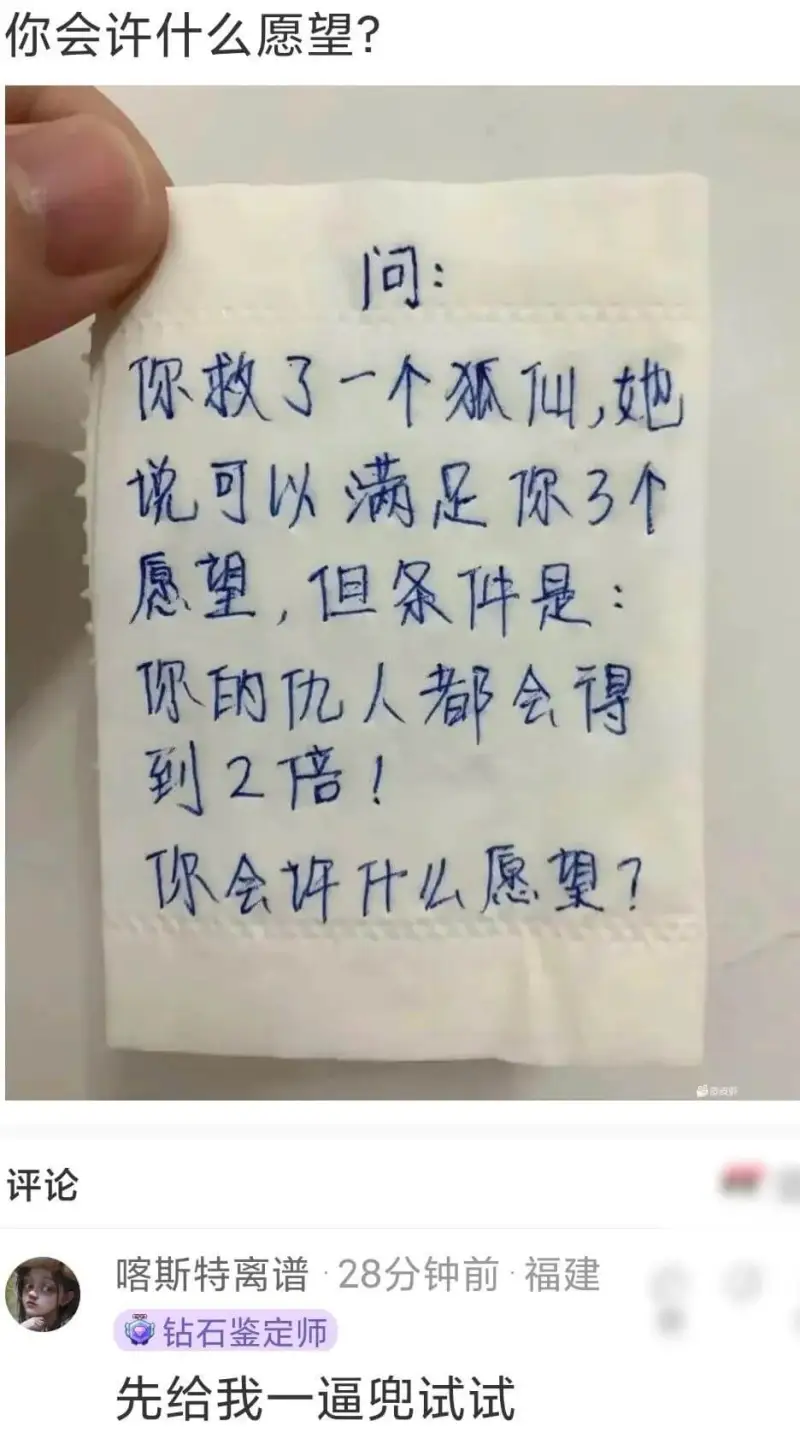 你会许什么愿望?
问:
你救了一个狐仙,她
说可以满足你3个
愿望,但条件是:
你的仇人都会得
到2倍!
你会许什么愿望?
评论
喀斯特离谱·28分钟前·福建
钻石鉴定师
先给我一逼兜试试